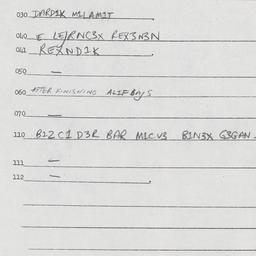 030 DARD1K M1LAM1T
040 E LEJRNC3X REX3N3N
041 REXND1K
050 —
060 AFTER FINISHING ALIF BAYS
070 —
110 B1Z C1 D3R BAR M1C V3 B1N3X G3GAN.
111 —
112 —